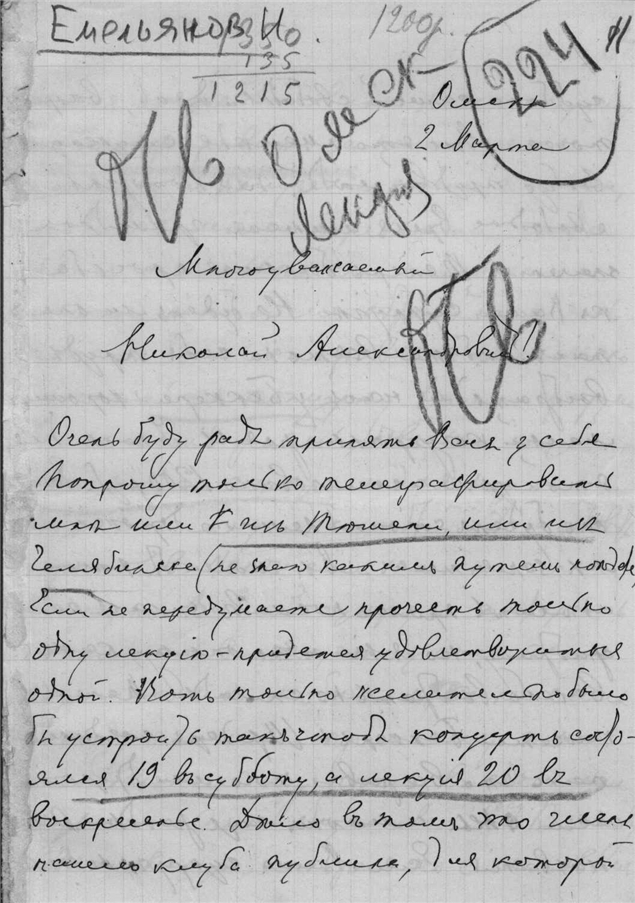 Емельянов Ио.
1200р.
330
135
1215
224
Омск
Лекция
Омскъ
2 Марта
Многоуважаемый
Николай Александровичъ!
Очень буду радъ принять Васъ у себя
Попрошу только телеграфировать
мнѣ или изъ Тюмени, или изъ
Челябинска (не знаю какимъ путемъ
Если не передумаете прочесть только
одну лекцію – придется удовлетвориться
одной. Хоть только желательно было
бы устроить такъ чтобъ концертъ состо-
ялся 19 въ субботу, а лекція 20 въ
воскресенье. Дѣло въ томъ что члены
нашего клуба публика, для которой